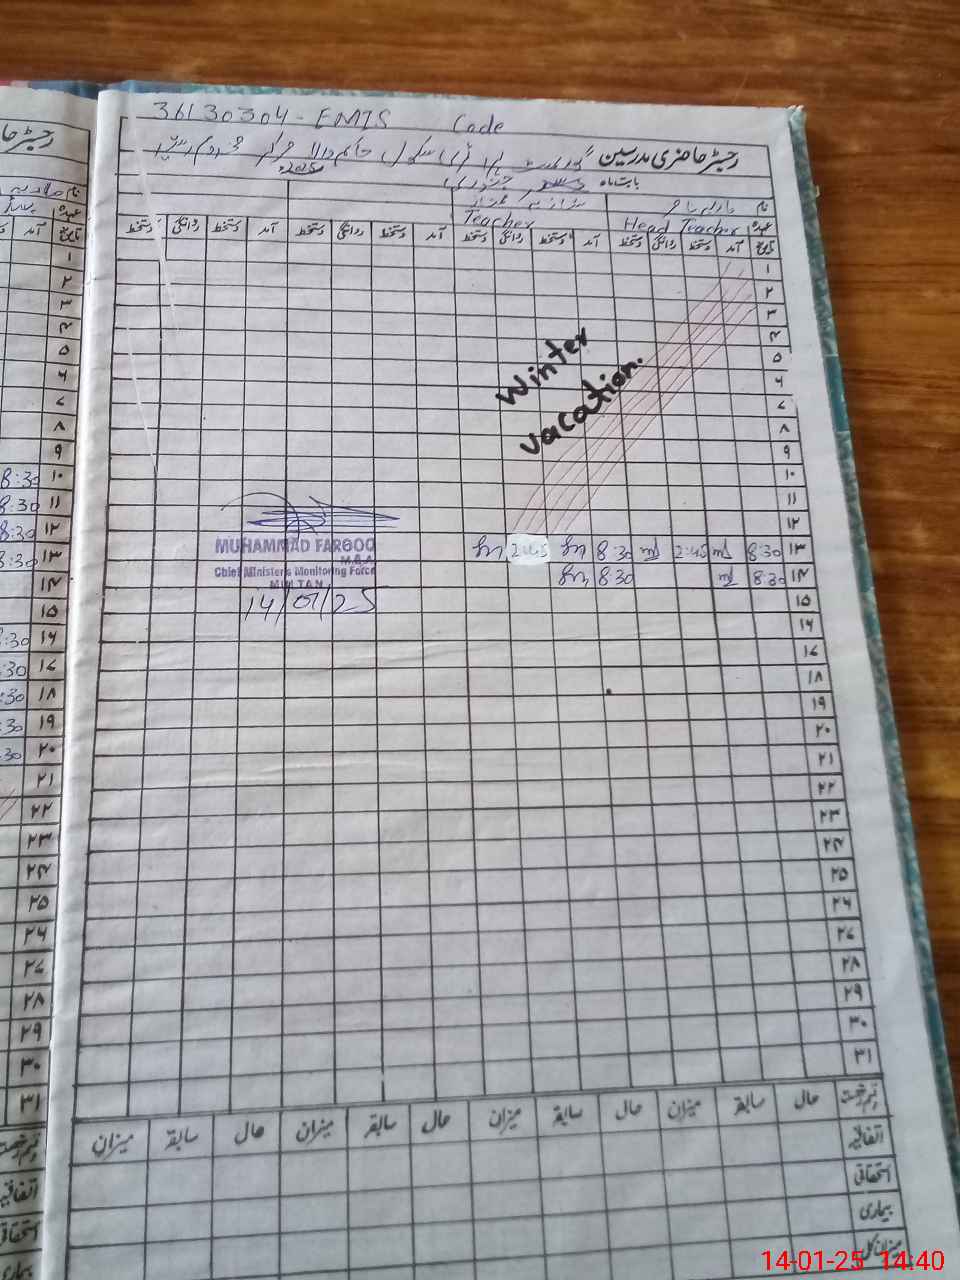 36130304 - EMIS Code
رجسٹر حاضری مدرسین گورنمنٹ
2025
بابت ماہ جنوری
نام
Teacher Head Teacher عہدہ
تاریخ آمد دستخط روانگی دستخط آمد دستخط روانگی دستخط آمد دستخط روانگی دستخط آمد دستخط روانگی دستخط
۱
۲
۳
۴
۵
۶
۷
۸
۹
۱۰
۱۱
۱۲
Winter
vacation.
۱۳ 8:30 2:45 8:30 2:45
۱۴ 8:30 8:30
MUHAMMAD FAROOQ
M.E.A
Chief Minister's Monitoring Force
MULTAN
14/01/25
۱۵
۱۶
۱۷
۱۸
۱۹
۲۰
۲۱
۲۲
۲۳
۲۴
۲۵
۲۶
۲۷
۲۸
۲۹
۳۰
۳۱
قسم رخصت حال سابقہ میزان حال سابقہ میزان حال سابقہ میزان حال سابقہ میزان
اتفاقیہ
استحقاقی
بیماری
میزان کل
رجسٹر حا
نام
عہدہ
تاریخ آمد
۱
۲
۳
۴
۵
۶
۷
۸
۹
۱۰ 8:30
۱۱ 8:30
۱۲ 8:30
۱۳ 8:30
۱۴
۱۵
۱۶ :30
۱۷ :30
۱۸ :30
۱۹ :30
۲۰ :30
۲۱
۲۲
۲۳
۲۴
۲۵
۲۶
۲۷
۲۸
۲۹
۳۰
۳۱
قسم رخصت
اتفاقیہ
استحقاقی
بیماری
14-01-25 14:40